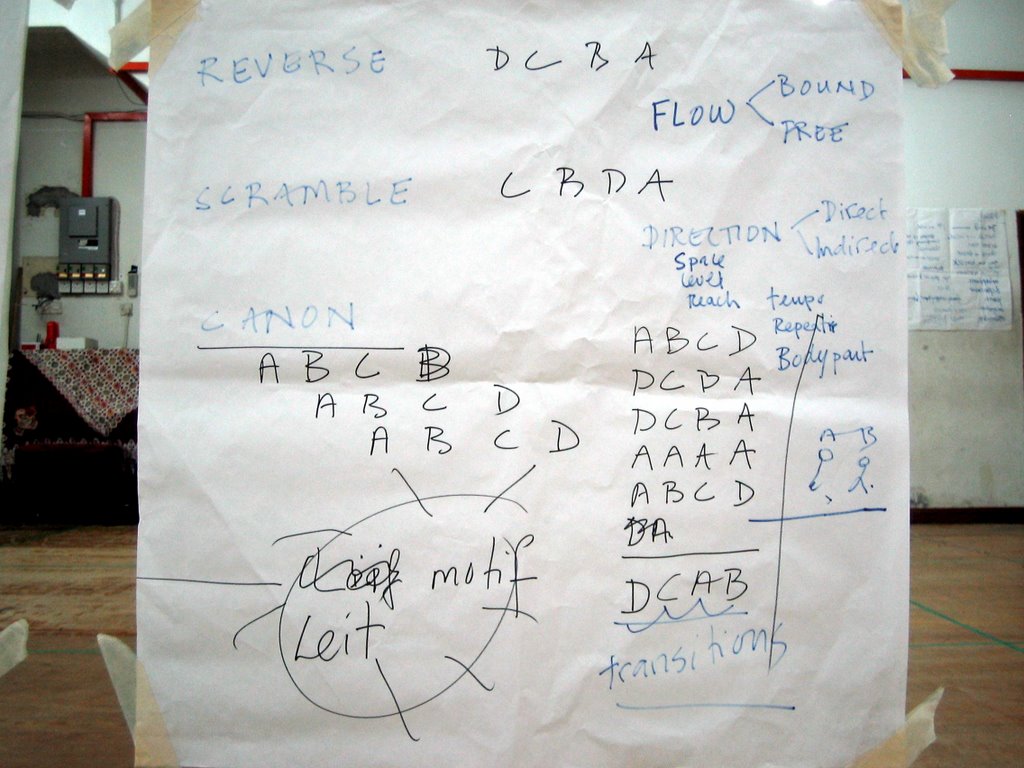 REVERSE D C B A
FLOW
BOUND
FREE
SCRAMBLE C B D A
DIRECTION
Direct
Indirect
Space
Level
Reach
tempo
Body part
CANON
A B C D
A B C D
A B C D
A B C D
D C B A
D C B A
A A A A
A B C D
BA
DCAB
transitions
A B
motif
Leit